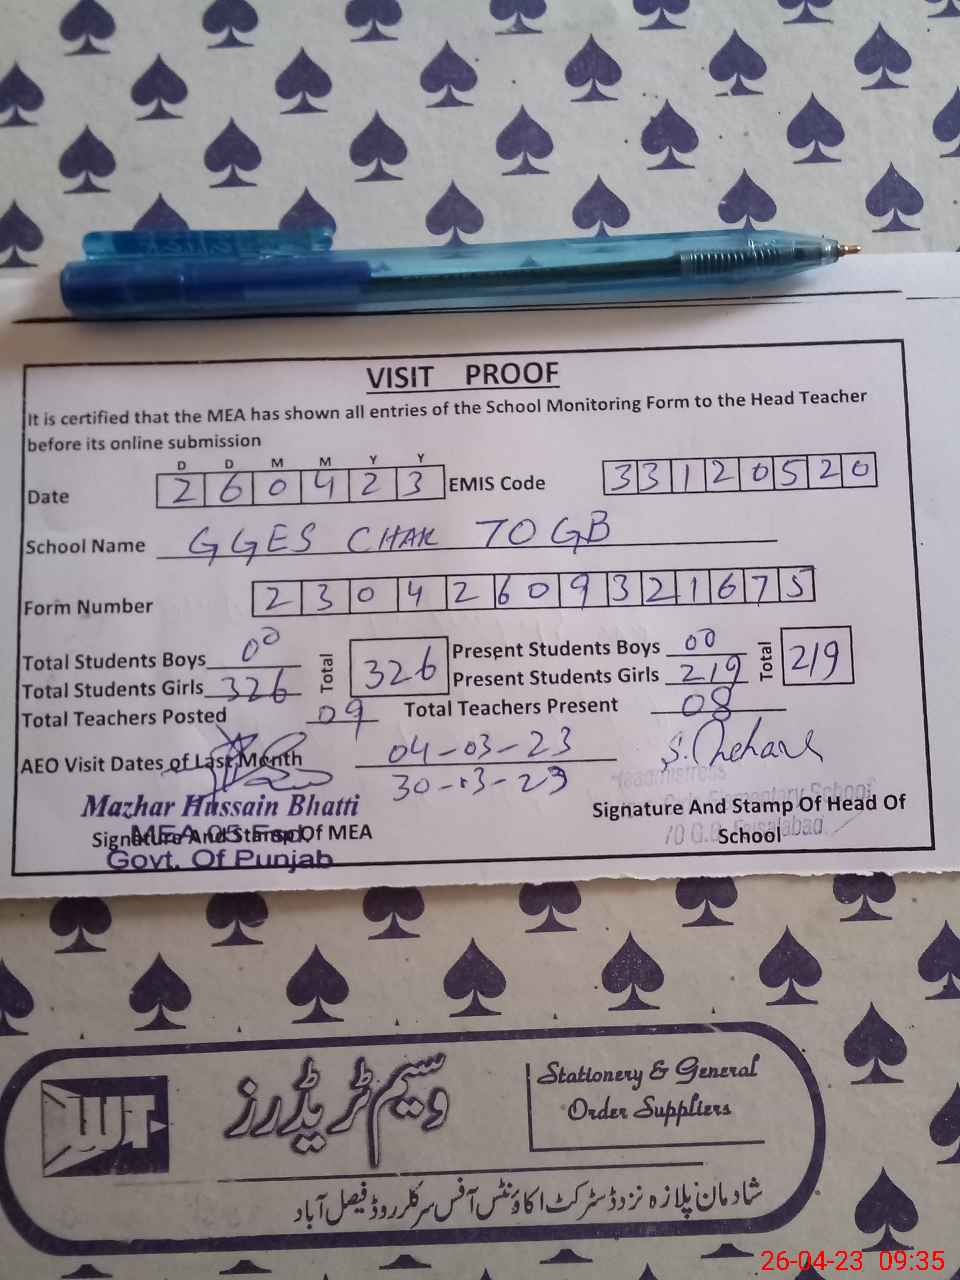 VISIT PROOF
It is certified that the MEA has shown all entries of the School Monitoring Form to the Head Teacher
before its online submission
D D M M Y Y
Date 2 6 0 4 2 3 EMIS Code 3 3 1 2 0 5 2 0
School Name GGES CHAK 70 GB
Form Number 2 3 0 4 2 6 0 9 3 2 1 6 7 5
Total Students Boys 00 Total 326 Present Students Boys 00 Total 219
Total Students Girls 326 Present Students Girls 219
Total Teachers Posted 09 Total Teachers Present 08
AEO Visit Dates of Last Month 04-03-23
30-03-23
Headmistress
Mazhar Hussain Bhatti
Elementary School
Signature And Stamp Of Head Of
MEA 05 Fsd
Signature And Stamp Of MEA
School
70 G.B. Faisalabad
Govt. Of Punjab
WT
وسیم ٹریڈرز
Stationery & General
Order Suppliers
شادمان پلازہ نزد ڈسٹرکٹ اکاؤنٹس آفس سرکلر روڈ فیصل آباد
26-04-23 09:35